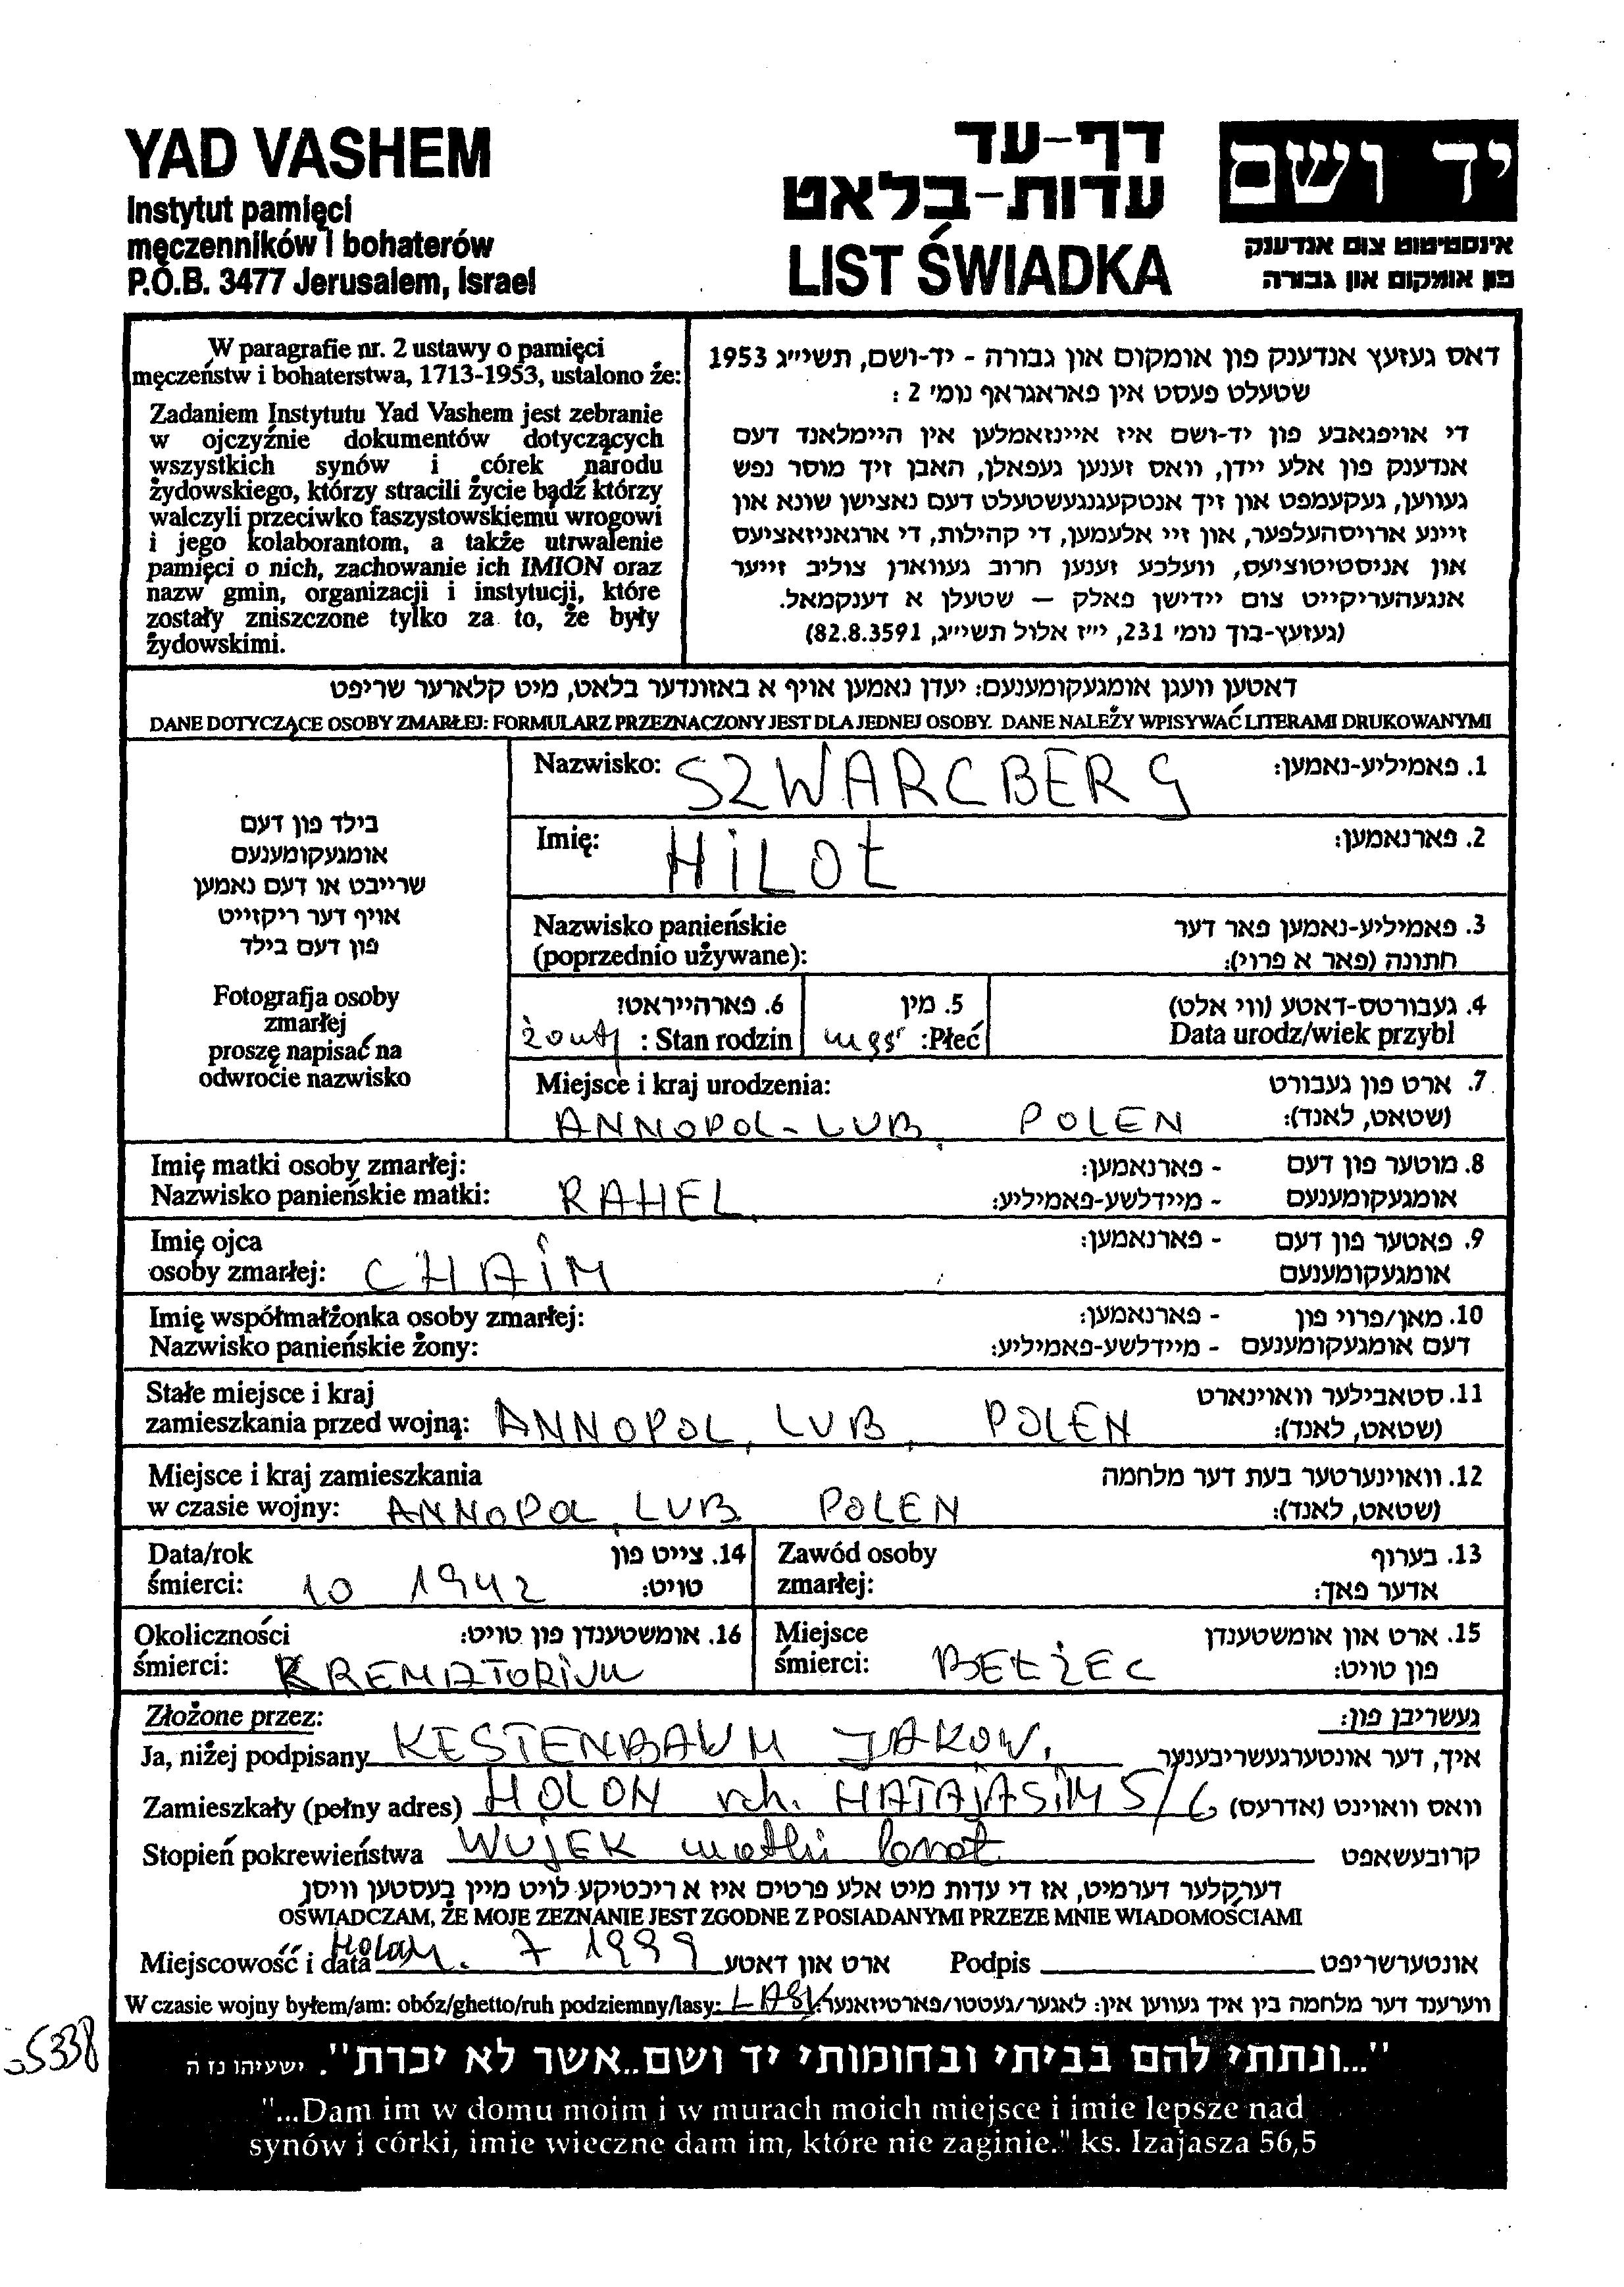 YAD VASHEM
Instytut pamięci
męczenników i bohaterów
P.O.B. 3477 Jerusalem, Israel
דף-עד
עדות-בלאט
LIST ŚWIADKA
יד ושם
אינסטיטוט צום אנדענק
פון אומקום און גבורה
W paragrafie nr. 2 ustawy o pamięci
męczeństw i bohaterstwa, 1713-1953, ustalono że:
Zadaniem Instytutu Yad Vashem jest zebranie
w ojczyźnie dokumentów dotyczących
wszystkich synów i córek narodu
żydowskiego, którzy stracili życie bądź którzy
walczyli przeciwko faszystowskiemu wrogowi
i jego kolaborantom, a także utrwalenie
pamięci o nich, zachowanie ich IMION oraz
nazw gmin, organizacji i instytucji, które
zostały zniszczone tylko za to, że były
żydowskimi.
דאס געזעץ אנדענק פון אומקום און גבורה - יד-ושם, תשי״ג 1953
שטעלט פעסט אין פאראגראף נומי 2 :
די אויפגאבע פון יד-ושם איז איינזאמלען אין היימלאנד דעם
אנדענק פון אלע יידן, וואס זענען געפאלן, האבן זיך מוסר נפש
געווען, געקעמפט און זיך אנטקעגנגעשטעלט דעם נאצישן שונא און
זיינע ארויסהעלפער, און זיי אלעמען, די קהילות, די ארגאניזאציעס
און אניסטיטוציעס, וועלכע זענען חרוב געווארן צוליב זייער
אנגעהעריקייט צום יידישן פאלק – שטעלן א דענקמאל.
(געזעץ-בוך נומי 231, י״ז אלול תשי״ג, 82.8.3591)
דאטען וועגן אומגעקומענעם: יעדן נאמען אויף א באזונדער בלאט, מיט קלארער שריפט
DANE DOTYCZĄCE OSOBY ZMARŁEJ: FORMULARZ PRZEZNACZONY JEST DLA JEDNEJ OSOBY. DANE NALEŻY WPISYWAĆ LITERAMI DRUKOWANYMI
בילד פון דעם
אומגעקומענעם
שרייבט או דעם נאמען
אויף דער ריקזייט
פון דעם בילד
Fotografja osoby
zmarłej
proszę napisać na
odwrocie nazwisko
Nazwisko: SZWARCBERG 1. פאמיליע-נאמען:
Imię: HiLOŁ 2. פארנאמען:
Nazwisko panieńskie 3. פאמיליע-נאמען פאר דער
(poprzednio używane): חתונה (פאר א פרוי):
6. פארהייראט? 5. מין 4. געבורטס-דאטע (ווי אלט)
żonaty : Stan rodzin męs :Płeć Data urodz/wiek przybl
Miejsce i kraj urodzenia: 7. ארט פון געבורט
ANNOPOL-LUB, POLEN (שטאט, לאנד):
Imię matki osoby zmarłej: - פארנאמען: 8. מוטער פון דעם
Nazwisko panieńskie matki: RAHEL - מיידלשע-פאמיליע: אומגעקומענעם
Imię ojca - פארנאמען: 9. פאטער פון דעם
osoby zmarłej: CHAIM אומגעקומענעם
Imię współmałżonka osoby zmarłej: - פארנאמען: 10. מאן/פרוי פון
Nazwisko panieńskie żony: - מיידלשע-פאמיליע: דעם אומגעקומענעם
Stałe miejsce i kraj 11. סטאבילער וואוינארט
zamieszkania przed wojną: ANNOPOL, LUB, POLEN (שטאט, לאנד):
Miejsce i kraj zamieszkania 12. וואוינערטער בעת דער מלחמה
w czasie wojny: ANNOPOL, LUB POLEN (שטאט, לאנד):
Data/rok 14. צייט פון Zawód osoby 13. בערוף
śmierci: 10 1942 טויט: zmarłej: אדער פאך:
Okoliczności 16. אומשטענדן פון טויט: Miejsce 15. ארט און אומשטענדן
śmierci: KREMATORIUM śmierci: BEŁŻEC פון טויט:
Złożone przez: געשריבן פון:
Ja, niżej podpisany KESTENBAUM JAKOW, איך, דער אונטערגעשריבענער
Zamieszkały (pełny adres) HOLON rch. HATAJASIM 5/6 וואס וואוינט (אדרעס)
Stopień pokrewieństwa WUJEK matki brat קרובעשאפט
דערקלער דערמיט, אז די עדות מיט אלע פרטים איז א ריכטיקע לויט מיין בעסטען וויסן
OŚWIADCZAM, ŻE MOJE ZEZNANIE JEST ZGODNE Z POSIADANYMI PRZEZE MNIE WIADOMOŚCIAMI
Miejscowość i data Holon. 7 1999 ארט און דאטע Podpis אונטערשריפט
W czasie wojny byłem/am: obóz/ghetto/ruh podziemny/lasy: LASY ווערענד דער מלחמה בין איך געווען אין: לאגער/געטטו/פארטיזאנער:
5338
"...ונתתי להם בביתי ובחומותי יד ושם..אשר לא יכרת". ישעיהו נז ה
"...Dam im w domu moim i w murach moich miejsce i imie lepsze nad
synów i córki, imie wieczne dam im, które nie zaginie." ks. Izajasza 56,5